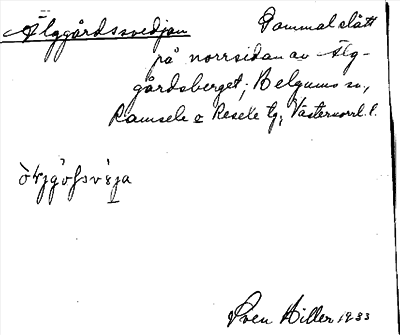 Älggårdssvedjan
Gammal slått
på norrsidan av Älg-
gårdsberget; Belgums sn,
Ramsele & Resele tg, Västernorrl. l.
Sven Hiller 1933